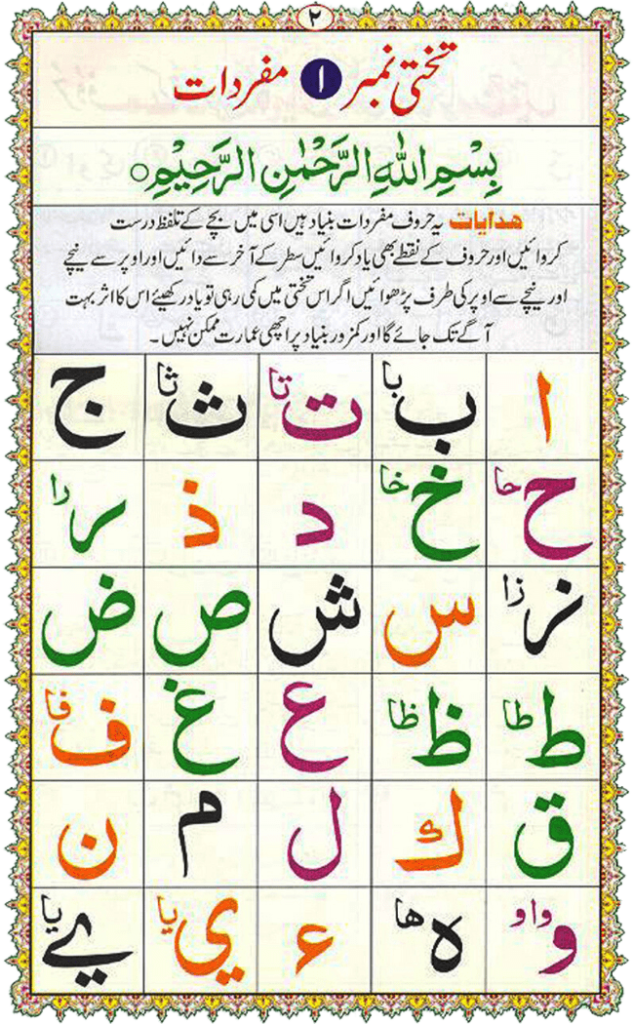 ۲
تختی نمبر ۱ مفردات
بِسْمِ اللهِ الرَّحْمٰنِ الرَّحِيْمِ○
هدایات یہ حروف مفردات بنیاد ہیں اسی میں بچے کے تلفظ درست
کروائیں اور حروف کے نقطے بھی یاد کروائیں سطر کے آخر سے دائیں اور اوپر سے نیچے
اور نیچے سے اوپر کی طرف پڑھوائیں اگر اس تختی میں کمی رہی تو یاد رکھیئے اس کا اثر بہت
آگے تک جائے گا اور کمزور بنیاد پر اچھی عمارت ممکن نہیں۔
ا ب با ت تا ث ثا ج
ح حا خ خا د ذ ر را
ز زا س ش ص ض
ط طا ظ ظا ع غ ف فا
ق ك ل م ن
و واو ه ها ء ي يا ے يا